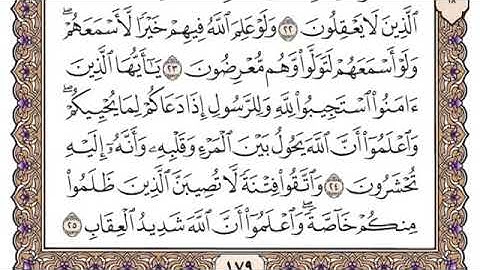 ١٨
ٱلَّذِينَ لَا يَعْقِلُونَ ٢٢ وَلَوْ عَلِمَ ٱللَّهُ فِيهِمْ خَيْرًا لَّأَسْمَعَهُمْ ۖ
وَلَوْ أَسْمَعَهُمْ لَتَوَلَّوا۟ وَّهُم مُّعْرِضُونَ ٢٣ يَـٰٓأَيُّهَا ٱلَّذِينَ
ءَامَنُوا۟ ٱسْتَجِيبُوا۟ لِلَّهِ وَلِلرَّسُولِ إِذَا دَعَاكُمْ لِمَا يُحْيِيكُمْ ۖ
وَٱعْلَمُوٓا۟ أَنَّ ٱللَّهَ يَحُولُ بَيْنَ ٱلْمَرْءِ وَقَلْبِهِۦ وَأَنَّهُۥٓ إِلَيْهِ
تُحْشَرُونَ ٢٤ وَٱتَّقُوا۟ فِتْنَةً لَّا تُصِيبَنَّ ٱلَّذِينَ ظَلَمُوا۟
مِنكُمْ خَآصَّةً ۖ وَٱعْلَمُوٓا۟ أَنَّ ٱللَّهَ شَدِيدُ ٱلْعِقَابِ ٢٥
١٧٩